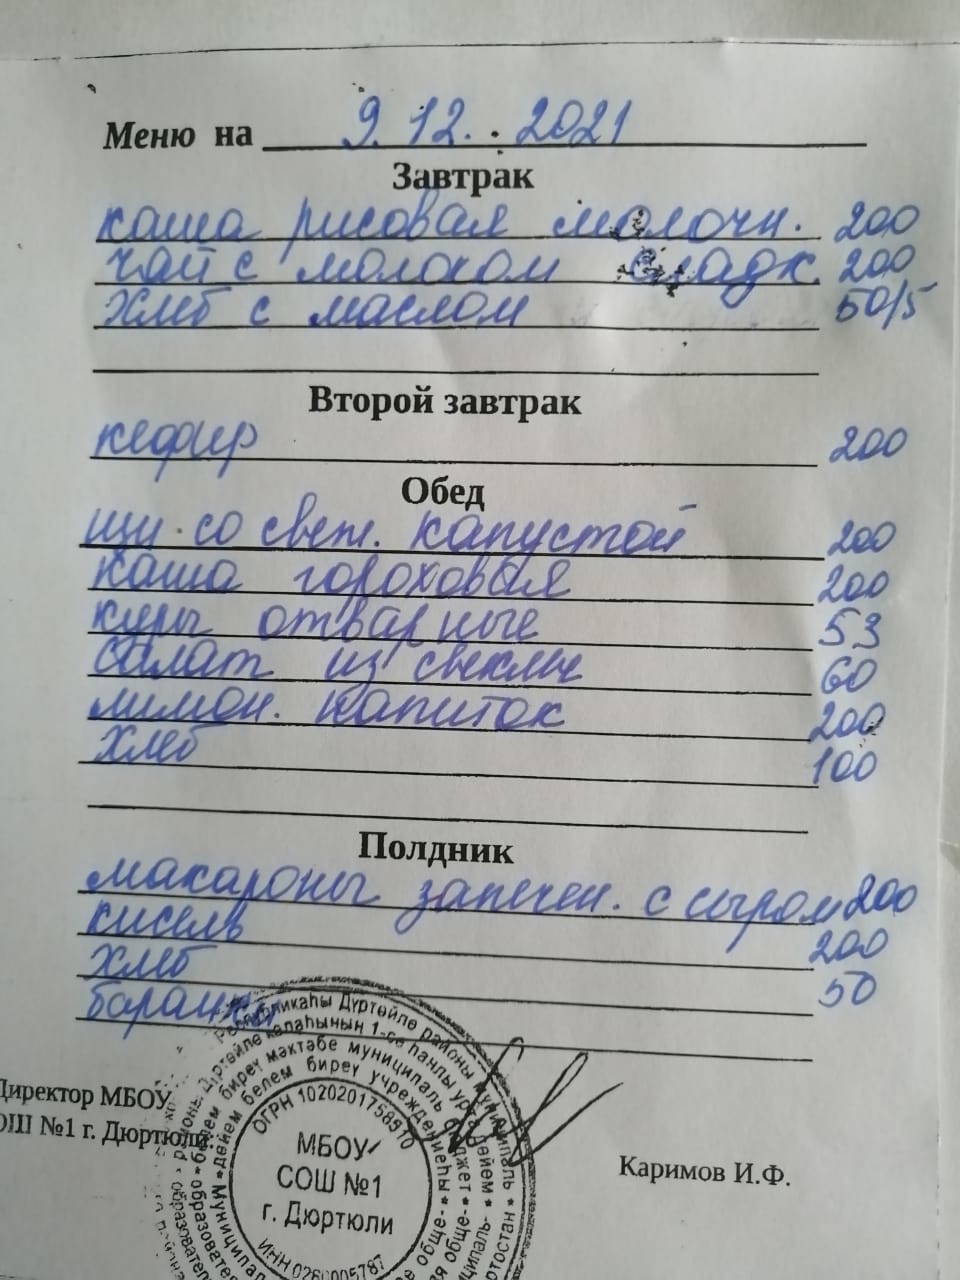 Меню на 9. 12. . 2021
Завтрак
каша рисовая молочн. 200
чай с молоком сладк 200
хлеб с маслом 50/5
Второй завтрак
кефир 200
Обед
щи со свеж. капустой 200
каша гороховая 200
куры отварные 53
салат из свеклы 60
лимон. напиток 200
хлеб 100
Полдник
макароны запечен. с сыром 200
кисель 200
хлеб 50
баранки
Директор МБОУ
ОШ №1 г. Дюртюли:
Каримов И.Ф.
Республикаһы Дүртөйлө районы муниципаль
Дүртөйлө ҡалаһының 1-се һанлы урта дөйөм
белем биреү мәктәбе муниципаль бюджет
дөйөм белем биреү учреждениеһы
ОГРН 1020201758910
МБОУ
СОШ №1
г. Дюртюли